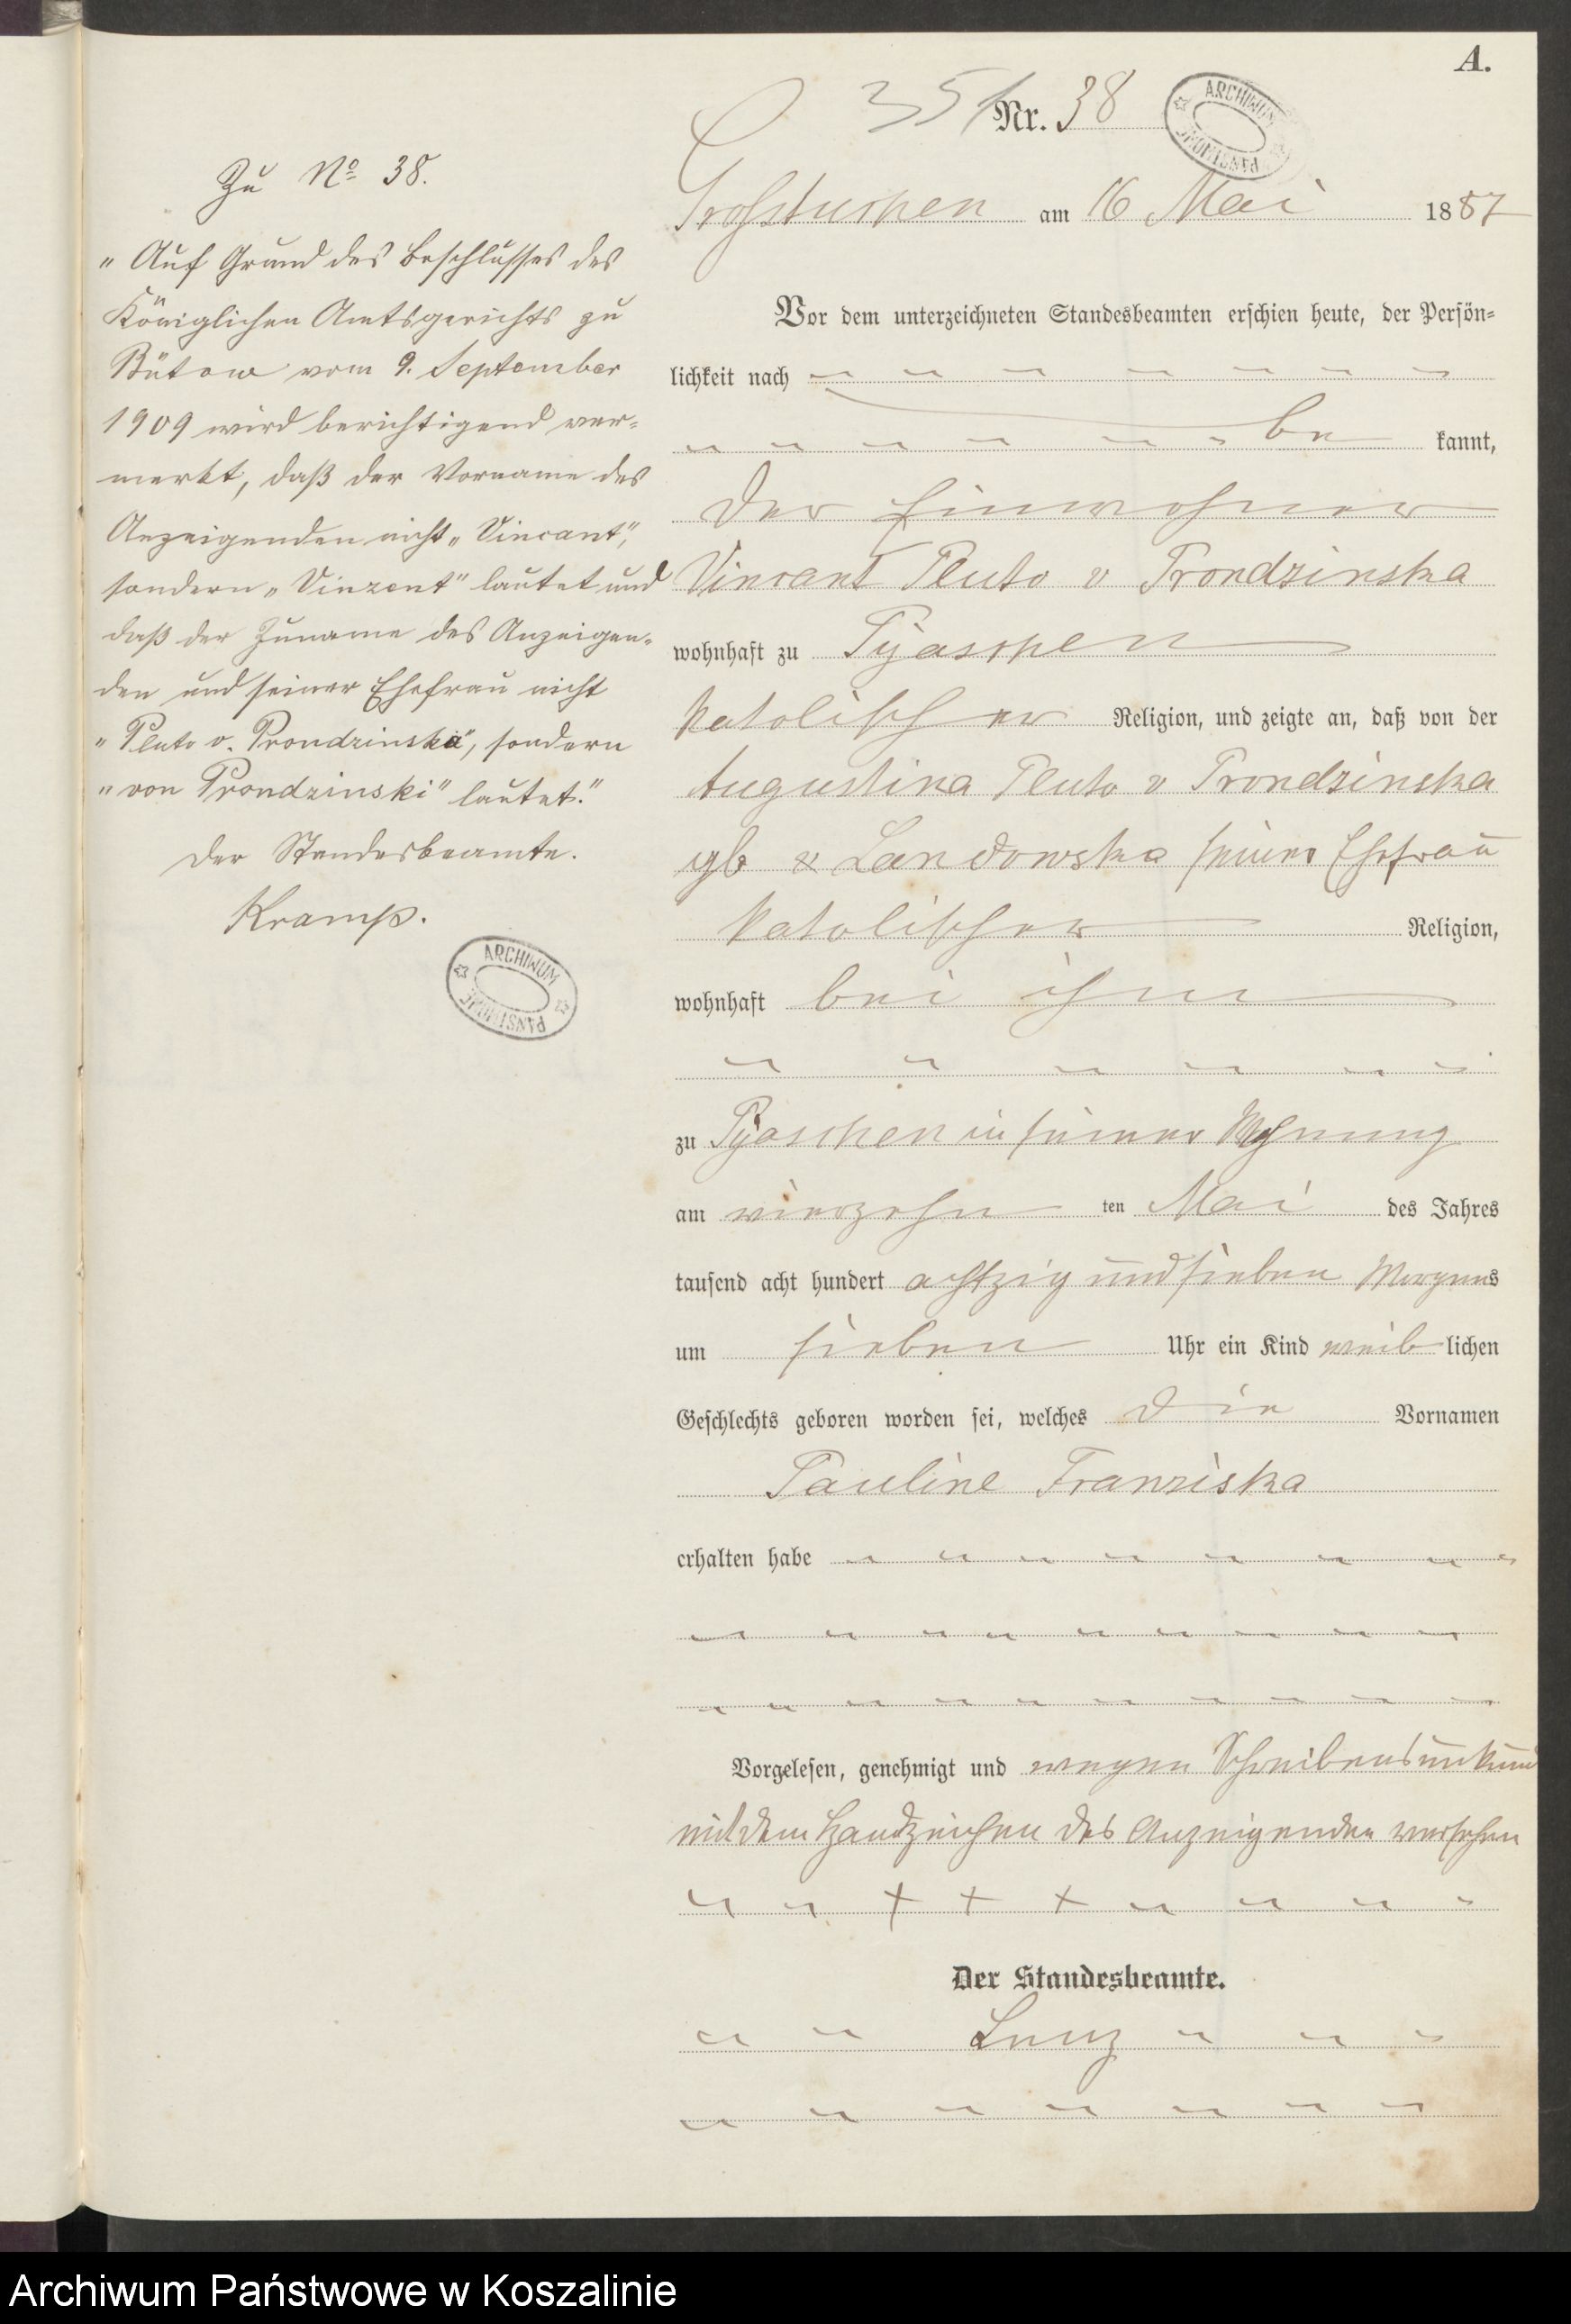 A.
351
Nr. 38
ARCHIWUM PAŃSTWOWE
Großtuchen am 16 Mai 1887
Vor dem unterzeichneten Standesbeamten erschien heute, der Persön-
lichkeit nach
be kannt,
der Einwohner
Vincant Pluto v Prondzinska
wohnhaft zu Pyaschen
katolischer Religion, und zeigte an, daß von der
Augustina Pluto v Prondzinska
gb v Landowska seiner Ehefrau
katolischer Religion,
wohnhaft bei ihm
zu Pyaschen in seiner Wohnung
am vierzehn ten Mai des Jahres
tausend acht hundert achtzig und sieben Morgens
um sieben Uhr ein Kind weib lichen
Geschlechts geboren worden sei, welches die Vornamen
Pauline Franziska
erhalten habe
Vorgelesen, genehmigt und wegen Schreibensunkund
mit dem Handzeichen des Anzeigenden versehen
+ + +
Der Standesbeamte.
Lenz
Zu No 38.
"Auf Grund des Beschlusses des
Königlichen Amtsgerichts zu
Bütow vom 9. September
1909 wird berichtigend ver-
merkt, daß der Vorname des
Anzeigenden nicht „Vincant",
sondern „Vinzent" lautet und
daß der Zuname des Anzeigen-
den und seiner Ehefrau nicht
"Pluto v. Prondzinska", sondern
"von Prondzinski" lautet."
Der Standesbeamte.
Kramp.
ARCHIWUM PAŃSTWOWE
Archiwum Państwowe w Koszalinie